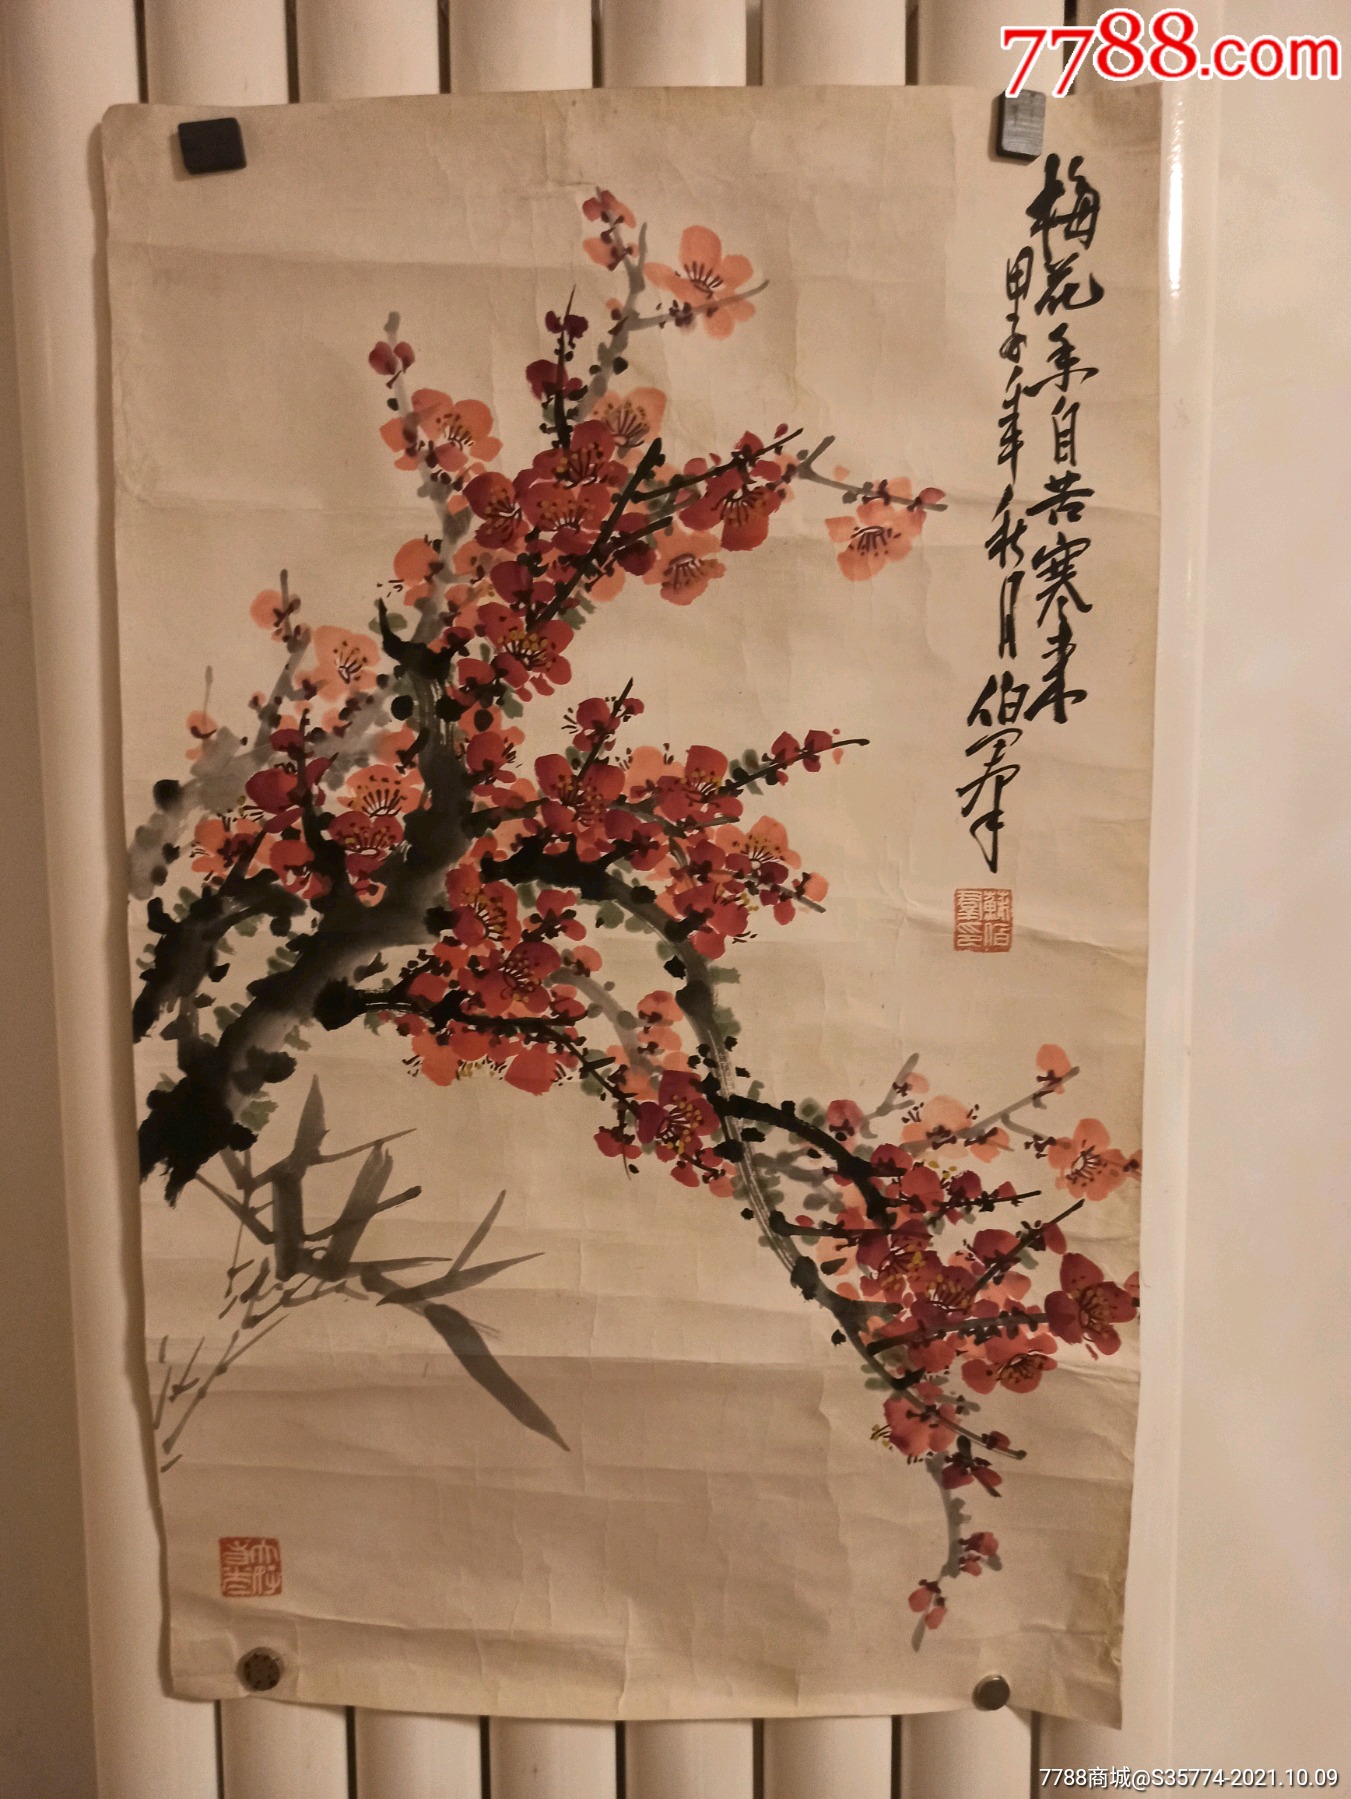 7788.com
梅花香自苦寒来
甲子年秋月
伯羣
蘇伯羣印
7788商城@S35774-2021.10.09